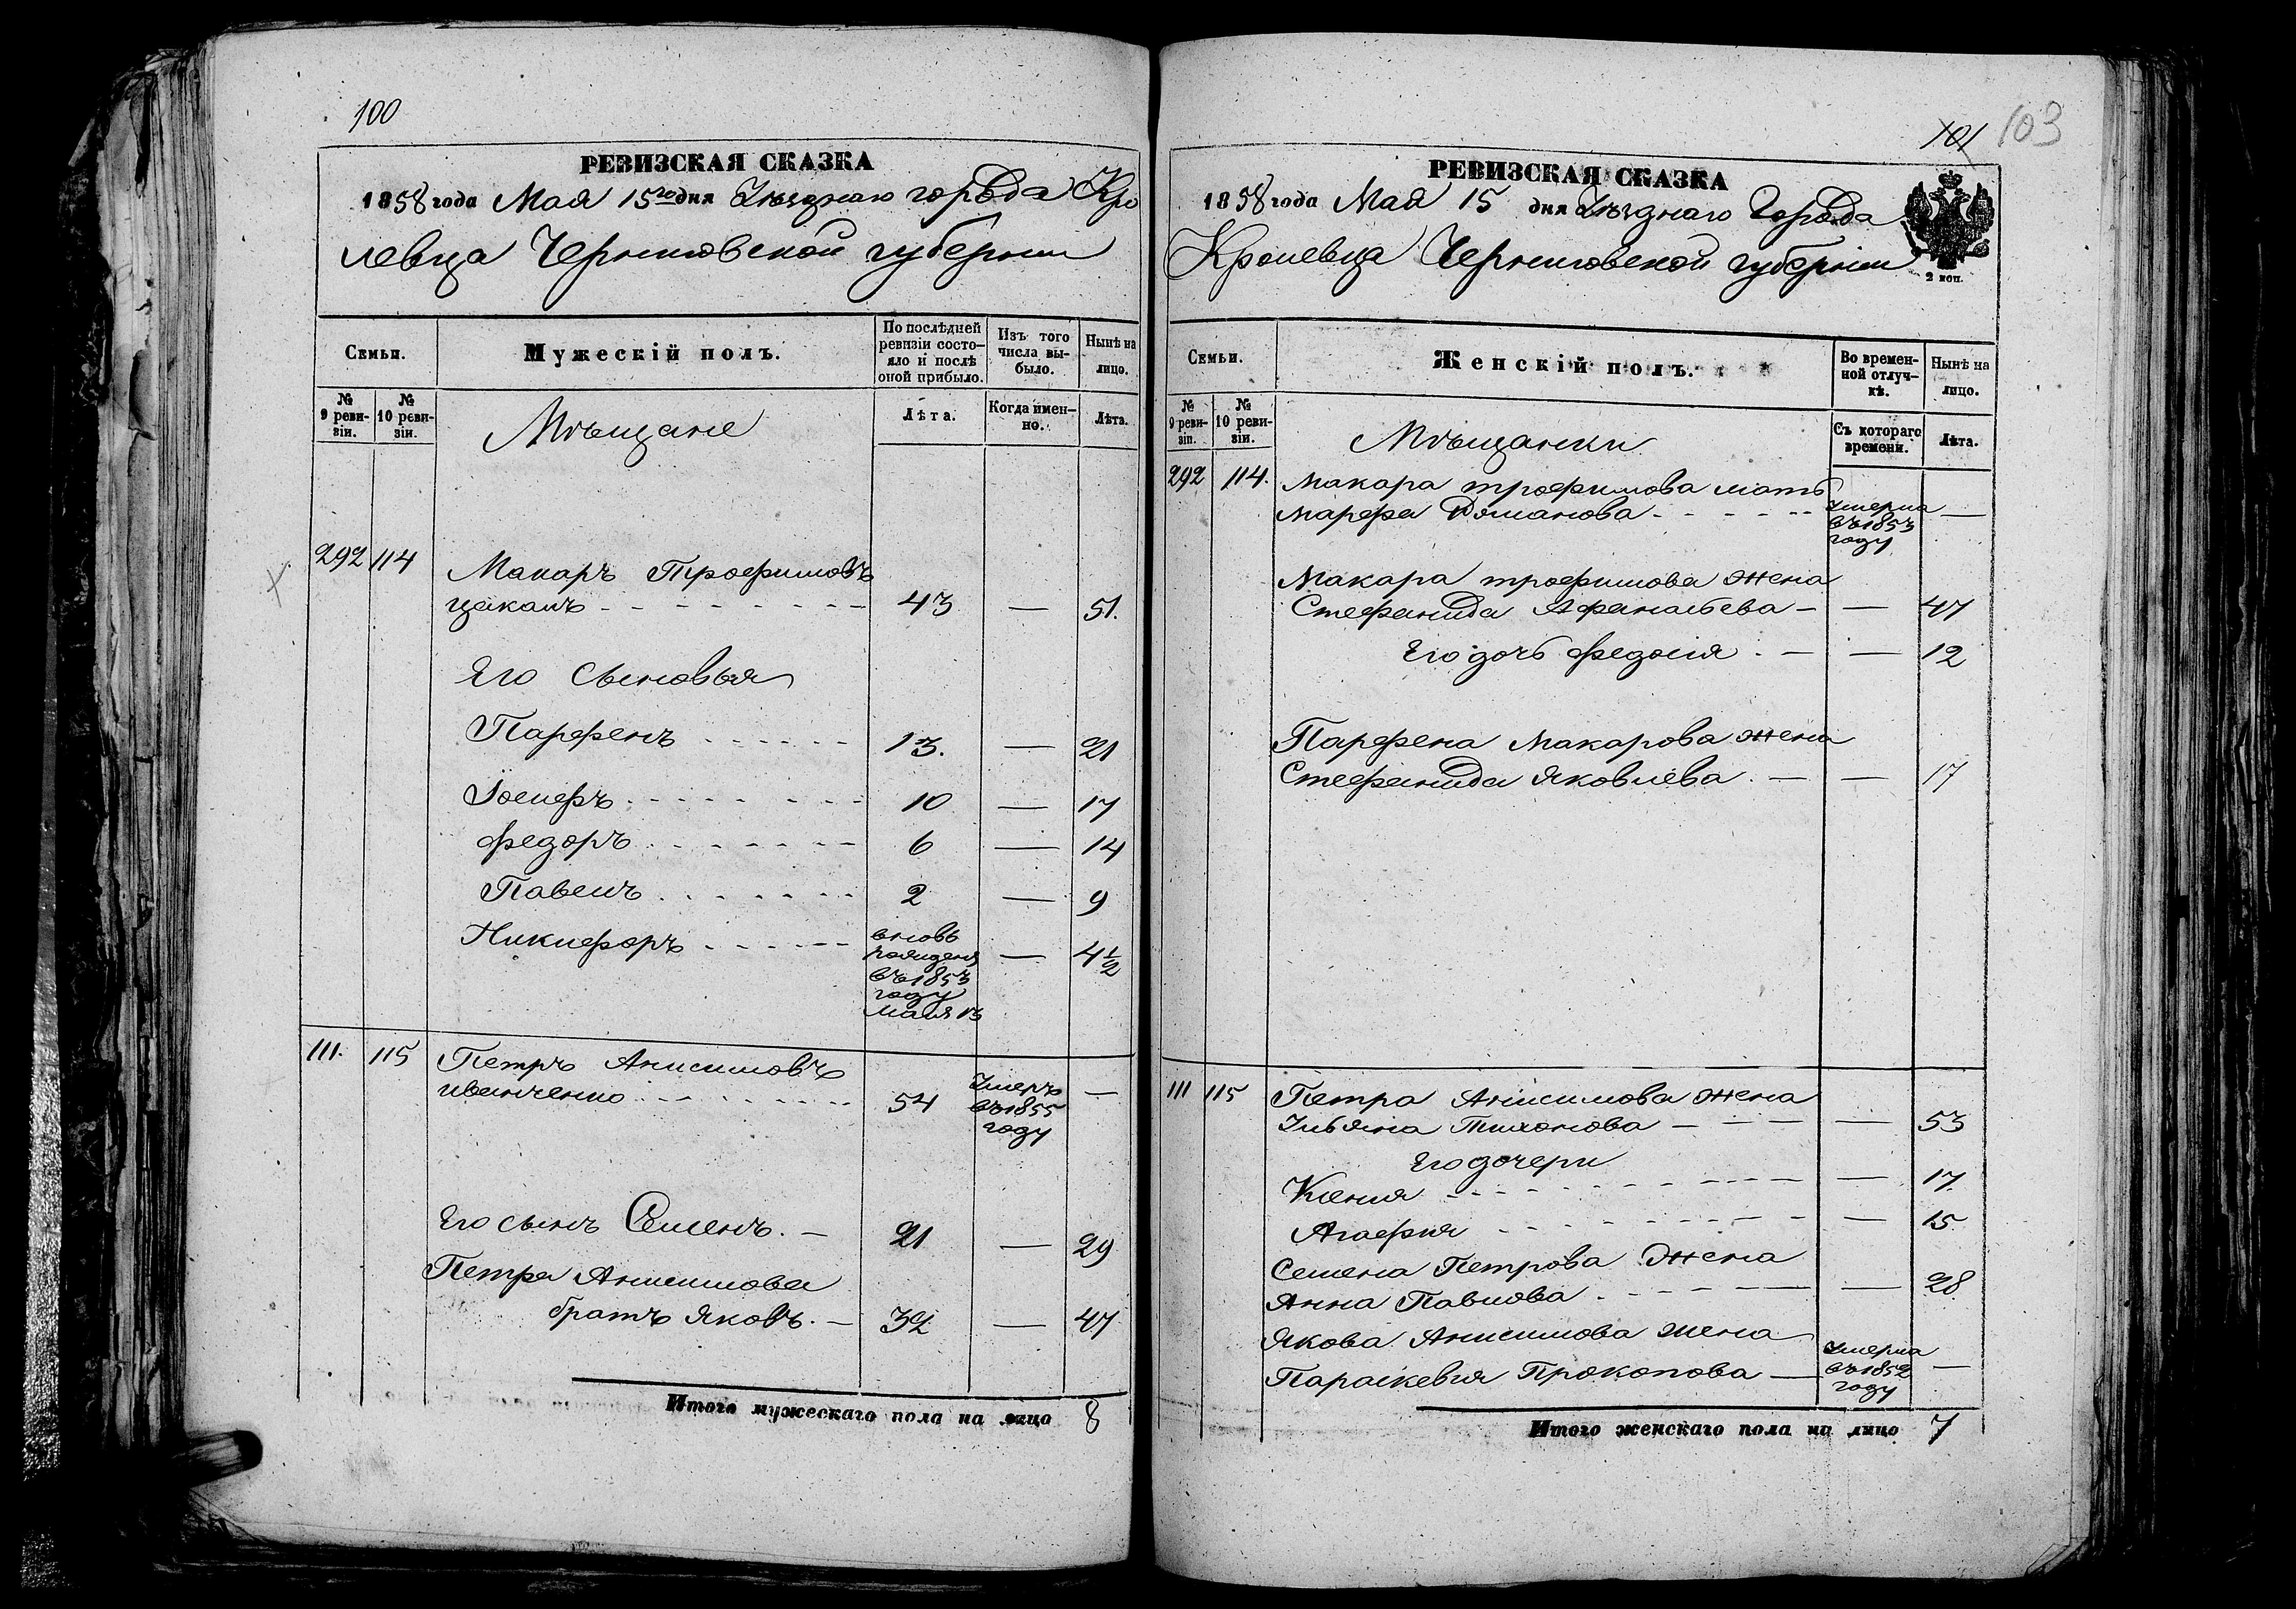 100
РЕВИЗСКАЯ СКАЗКА
1858 года Мая 15го дня Уѣзднаго города Кро
левца Черниговской губерніи
Семьи.
Мужескій полъ.
По послѣдней ревизіи состо-
яло и послѣ оной прибыло.
Изъ того числа вы-
было.
Нынѣ на лицо.
№ 9 реви-
зіи.
№ 10 реви-
зіи.
Мѣщане
Лѣта.
Когда имен-
но.
Лѣта.
292 114
Макаръ Трофимовъ
цакалъ 43 — 51.
Его Сыновья
Парфенъ 13. — 21
Іосифъ 10 — 17
Федоръ 6 — 14
Павелъ 2 — 9
Никифоръ вновь — 4½
рожденъ
въ 1853
году
Маія 13
111. 115 Петръ Анисимовъ
иванченко 54 Умеръ —
въ 1855
году
Его сынъ Семенъ. — 21 — 29
Петра Анисимова
братъ Яковъ. — 39 — 47
Итого мужескаго пола на лицо 8
101 103
РЕВИЗСКАЯ СКАЗКА
1858 года Мая 15 дня Уѣзднаго Города
Кролевца Черниговской губерніи
2 коп.
Семьи.
Женскій полъ.
Во времен-
ной отлуч-
кѣ.
Нынѣ на лицо.
№ 9 реви-
зіи.
№ 10 реви-
зіи.
Мѣщанки
Съ котораго времени.
Лѣта.
292 114. Макара трофимова мать
марфа Дěманова Умерла —
въ 1853
году
Макара трофимова жена
Стефанида Афанасьева — — 47
Его дочь федосія. — — 12
Парфена Макарова жена
Стефанида Яковлева. — — 17
111 115 Петра Анисимова жена
Ульяна Тихонова — — 53
Его дочери
Ксенія — 17.
Агафія — 15.
Семена Петрова Жена
Анна Павлова. — 28
Якова Анисимова жена
Параскевія Прокопова — Умерла —
въ 1852
году
Итого женскаго пола на лицо 7